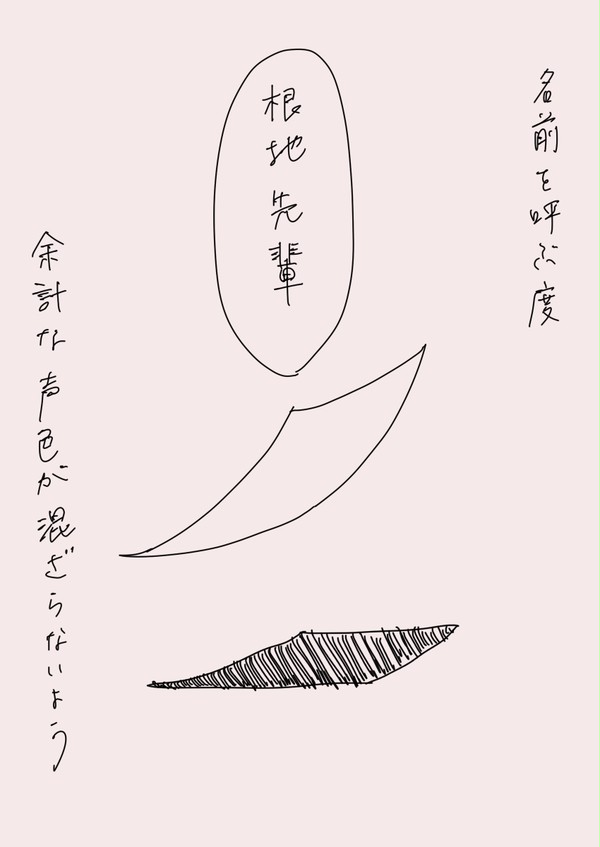 名前を呼ぶ度
根地先輩
余計な声色が混ざらないよう